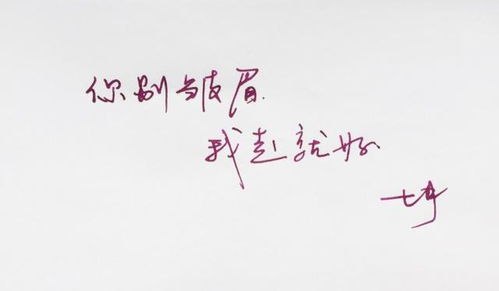 你别皱眉.
我走就好